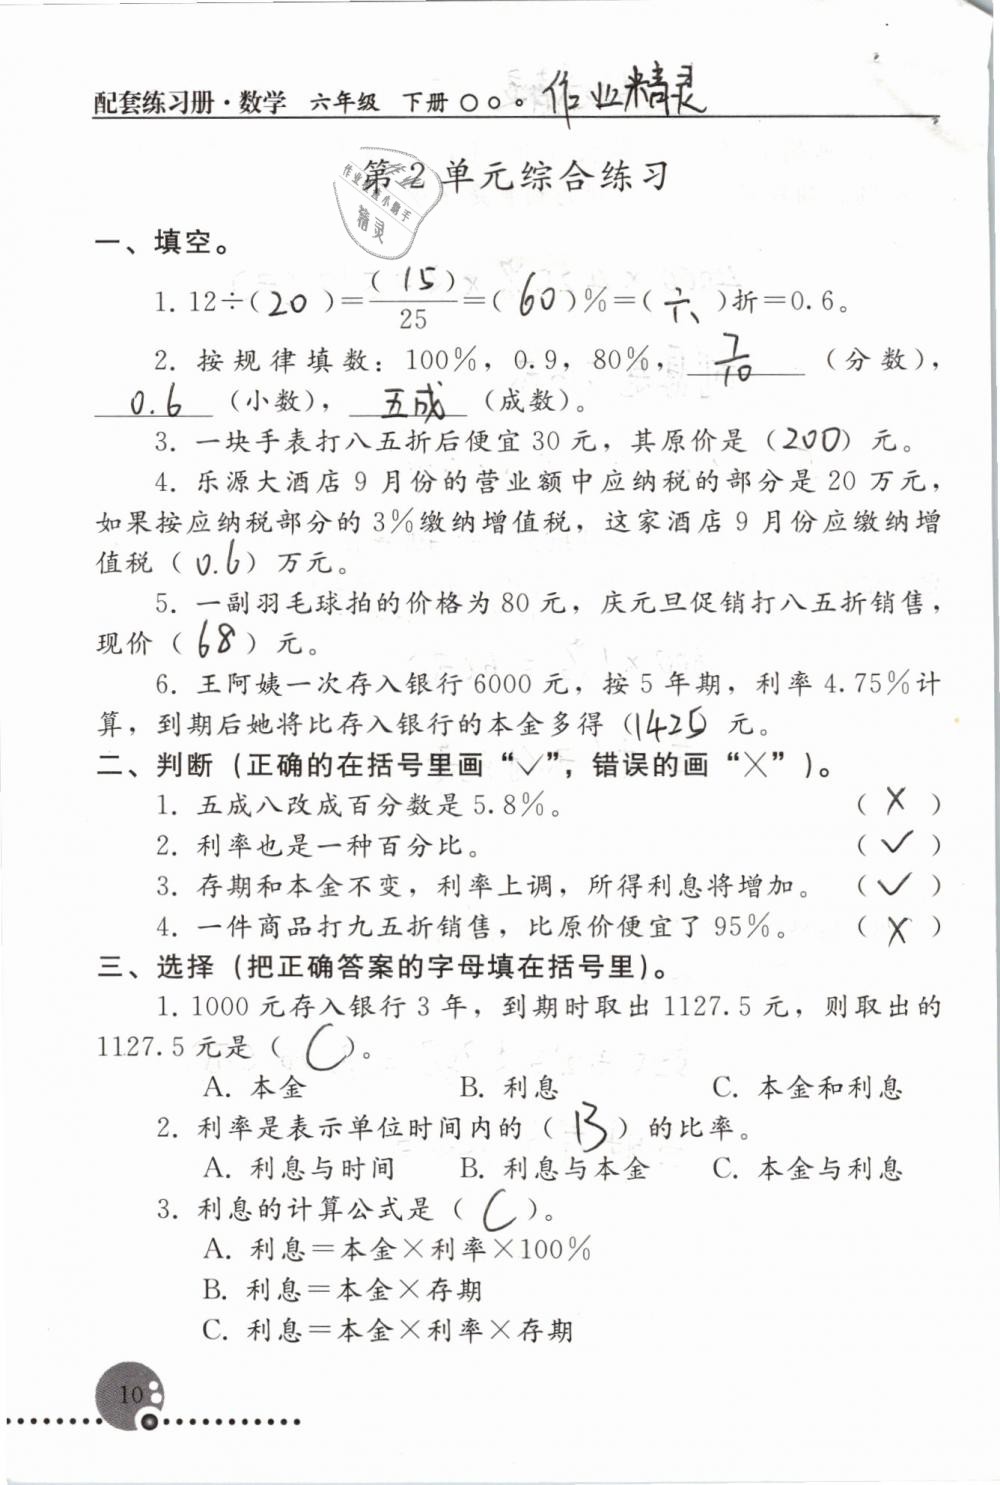 配套练习册·数学 六年级 下册 作业精灵
第2单元综合练习
作业
小助手
精灵
一、填空。
1. 12÷(20)=(15)/25=(60)%=(六、)折=0.6。
2. 按规律填数：100%，0.9，80%，7/10（分数），
0.6（小数），五成（成数）。
3. 一块手表打八五折后便宜30元，其原价是（200）元。
4. 乐源大酒店9月份的营业额中应纳税的部分是20万元，
如果按应纳税部分的3%缴纳增值税，这家酒店9月份应缴纳增
值税（0.6）万元。
5. 一副羽毛球拍的价格为80元，庆元旦促销打八五折销售，
现价（68）元。
6. 王阿姨一次存入银行6000元，按5年期，利率4.75%计
算，到期后她将比存入银行的本金多得（1425）元。
二、判断（正确的在括号里画“√”，错误的画“×”）。
1. 五成八改成百分数是5.8%。（×）
2. 利率也是一种百分比。（√）
3. 存期和本金不变，利率上调，所得利息将增加。（√）
4. 一件商品打九五折销售，比原价便宜了95%。（×）
三、选择（把正确答案的字母填在括号里）。
1. 1000元存入银行3年，到期时取出1127.5元，则取出的
1127.5元是（C）。
A. 本金 B. 利息 C. 本金和利息
2. 利率是表示单位时间内的（B）的比率。
A. 利息与时间 B. 利息与本金 C. 本金与利息
3. 利息的计算公式是（C）。
A. 利息=本金×利率×100%
B. 利息=本金×存期
C. 利息=本金×利率×存期
10